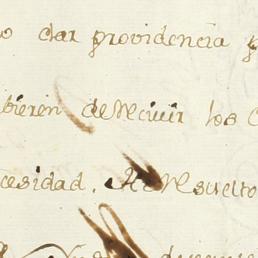 o dar providencia
bieren de Recivir los
cesidad. He Resuelto